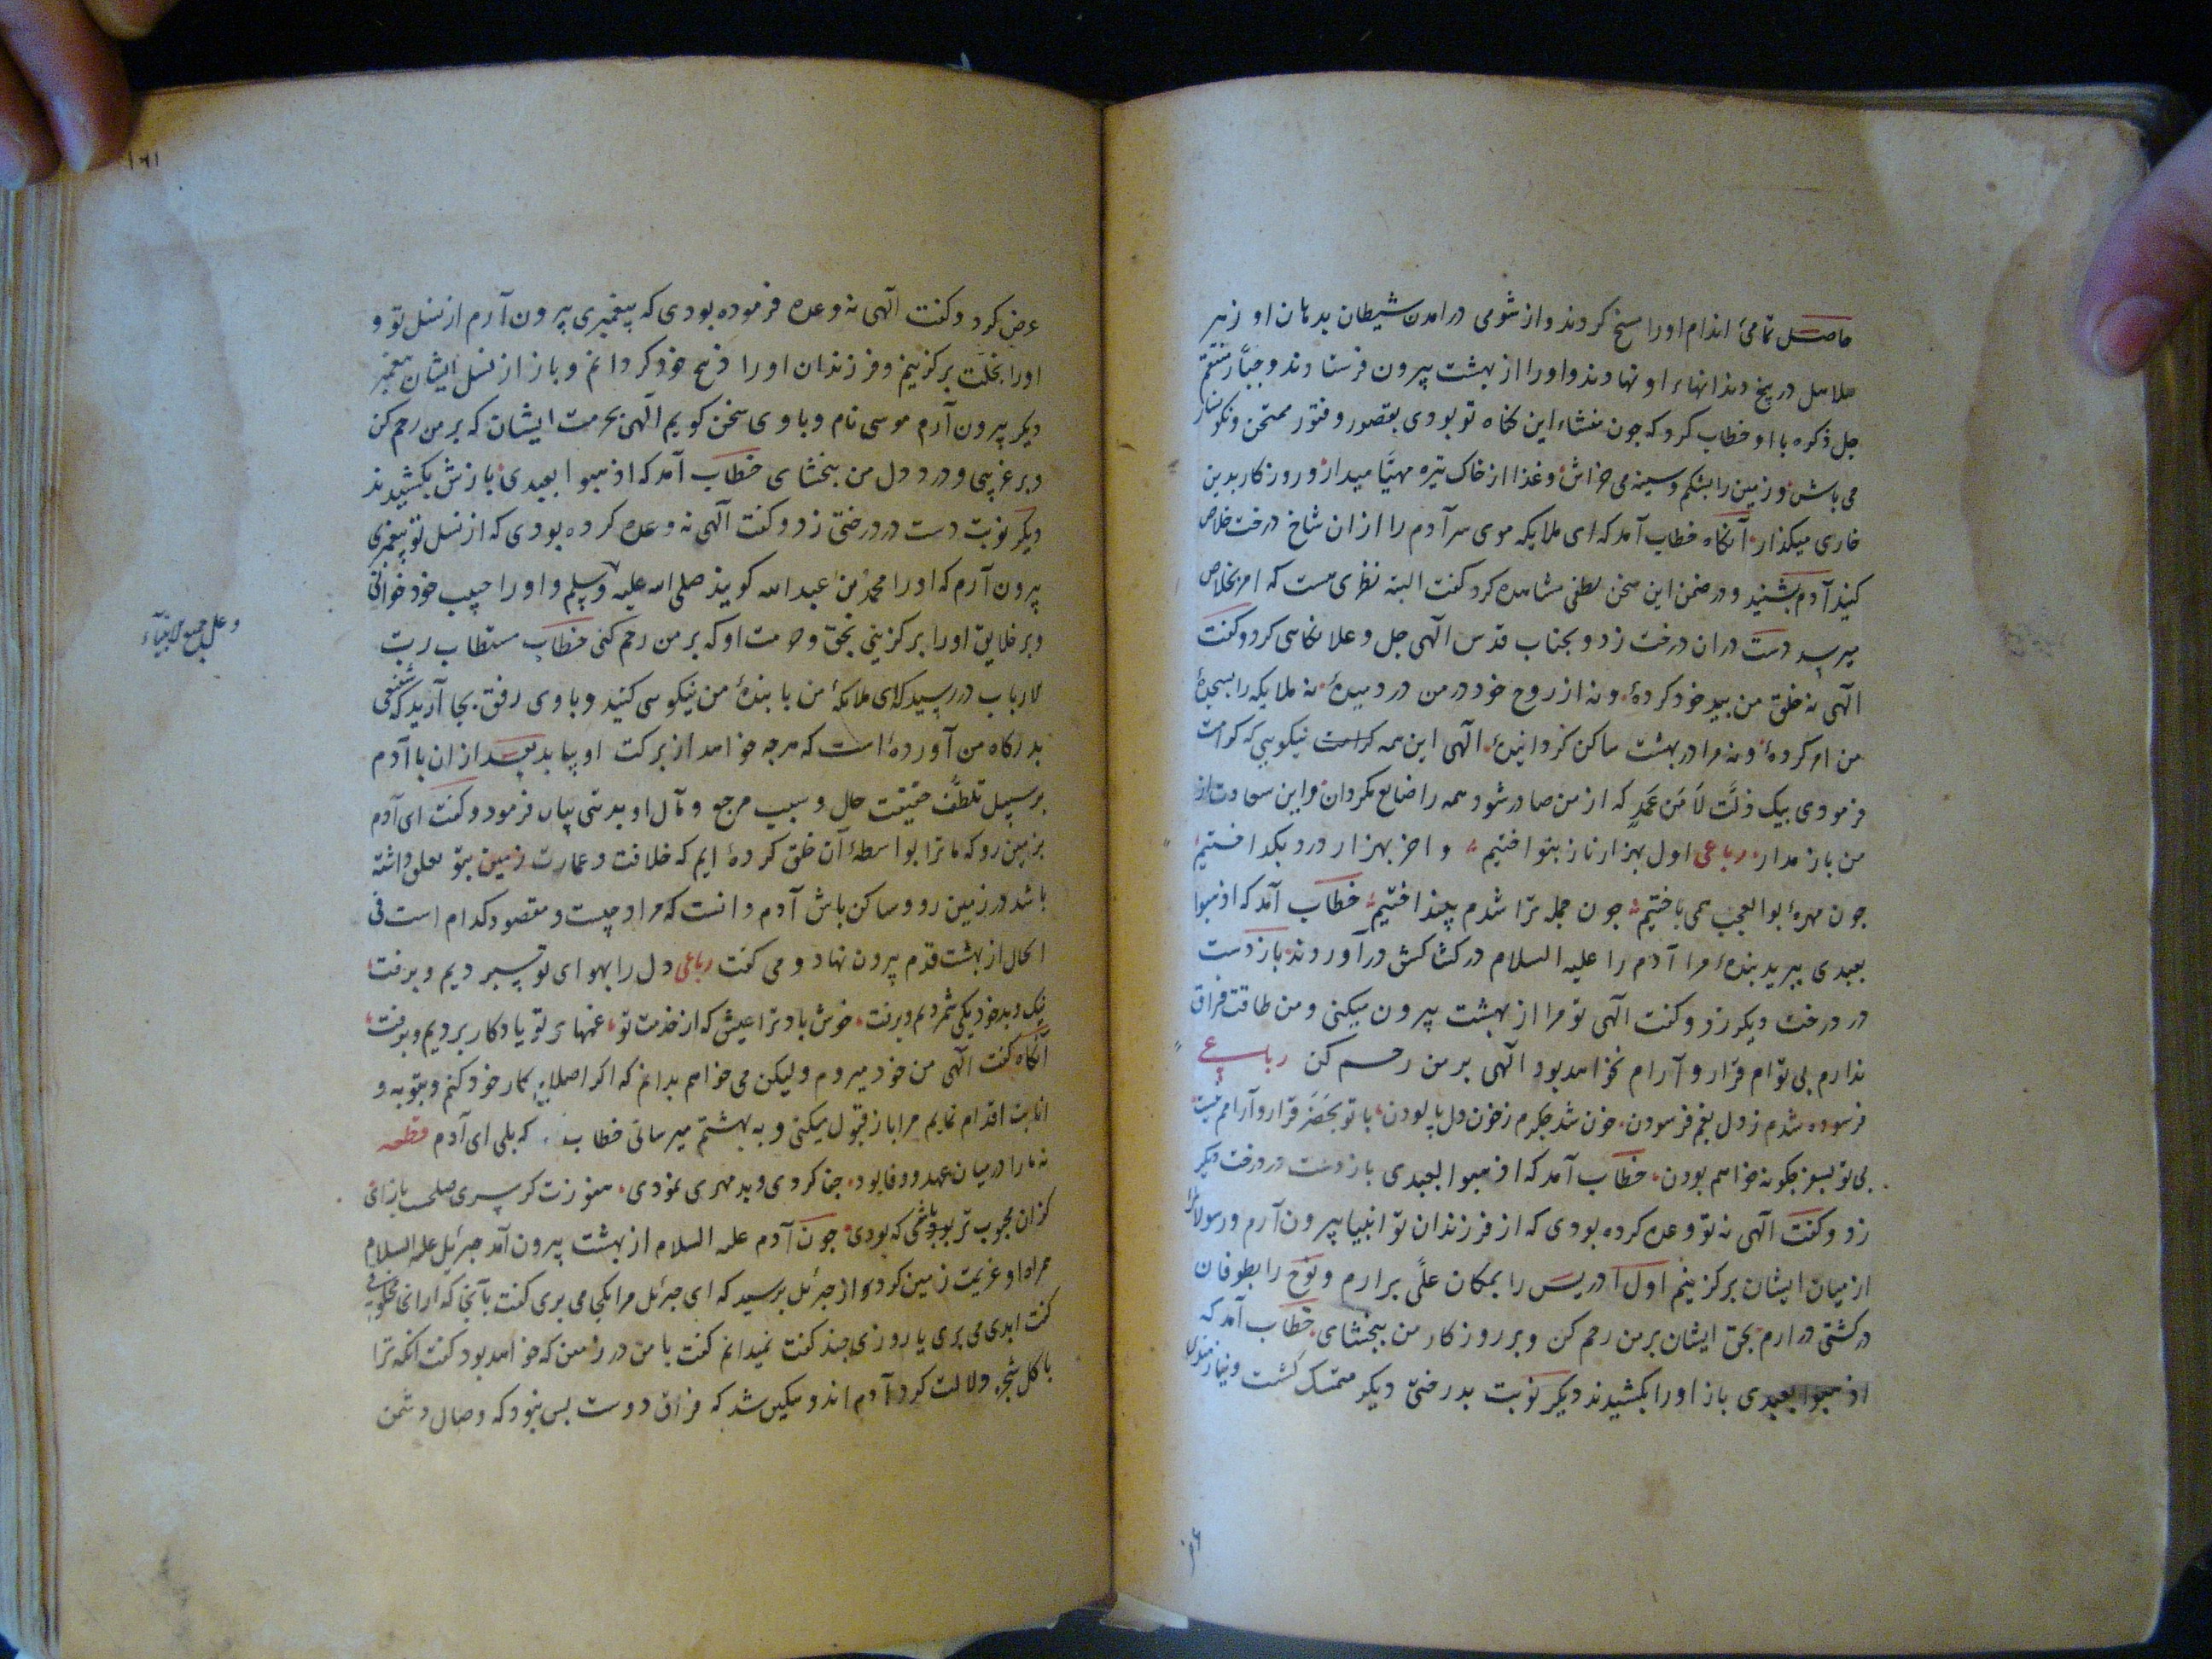 حاصل تمامئ اندام اورا مسخ کردند و از شومی در امدن شیطان بدهان او زهر
هلاهل در بیخ دندانهاء او نهادند و اورا از بهشت بیرون فرستادند و جبار منتقم
جل ذکره با او خطاب کرد که جون منشاء این کناه تو بودی بقصور و فتور ممتحن و نکونسار
می باش و زمین را بشکم و سینه می خراش و غذا از خاک تیره مهیا میدار و روزکار بدین
خاری میکذار آنکاه خطاب آمد که ای ملایکه موی سر آدم را از ان شاخ درخت خلاص
کنید آدم بشنید و در ضمن این سخن لطفی مشاهده کرد کفت البته نظری هست که امر بخلاص
میرسد دست در ان درخت زد و بجناب قدس الهی جل و علا مناسی کرد و کفت
الهی نه خلق من بید خود کردهٔ و نه از روح خود در من در دمیدهٔ نه ملایکه را بسجدهٔ
من امر کردهٔ و نه مرا در بهشت ساکن کردانیدهٔ الهی این همه کرامت نیکویی که کرامت
فرمودی بیک زلت لا عن عمد که از من صادر شود همه را ضایع مکردان و این سعادت از
من باز مدار رباعی اول بهزار ناز بنواختیم و اخر بهزار درد بکداختیم
جون مهرهٔ بوالعجب همی باختیم جون جمله ترا شدم بینداختیم خطاب آمد که اذهبوا
بعبدی ببرید بندهٔ مرا آدم را علیه السلام در کشاکش در آوردند باز دست
در درخت دیکر زد و کفت الهی تو مرا از بهشت بیرون میکنی و من طاقت فراق
ندارم بی توام قرار و آرام نخواهد بود الهی بر من رحم کن رباعی
فرسوده شدم ز دل بغم فرسودن خون شد جکرم ز خون دل پالودن با تو بحضر قرار و آرامم نیست
بی تو بسفر جکونه خواهم بودن خطاب آمد که اذهبوا بعبدی باز دست در درخت دیکر
زد و کفت الهی نه تو وعده کرده بودی که از فرزندان تو انبیا بیرون آرم و رسولانرا
از میان ایشان برکزینم اول ادریس را بمکان علی برارم و نوح را بطوفان
در کشتی در ارم بحق ایشان بر من رحم کن و بر روزکار من ببخشای خطاب آمد که
اذهبوا بعبدی باز اورا بکشیدند دیکر نوبت بدرختی دیکر متمسک کشت و نیازمندی
عرض کرد و کفت الهی نه وعده فرموده بودی که پیغمبری بیرون آرم از نسل تو و
اورا بخلت برکزینم و فرزندان اورا ذبیح خود کردانم و باز از نسل ایشان پیغمبر
دیکر بیرون آرم موسی نام و با وی سخن کویم الهی بحرمت ایشان که بر من رحم کن
و بر غریبی و درد دل من ببخشای خطاب آمد که اذهبوا بعبدی بازش بکشیدند
دیکر نوبت دست در درختی زد و کفت الهی نه وعده کرده بودی که از نسل تو پیغمبری
بیرون آرم که اورا محمد بن عبد الله کویند صلی الله علیه وسلم و اورا حبیب خود خوانی
وعلی جمیع الانبیاء
و بر خلایق اورا برکزینی بحق و حرمت او که بر من رحم کنی خطاب مستطاب رب
الارباب در رسید که ای ملائکهٔ من با بندهٔ من نیکویی کنید و با وی رفق بجا آرید که شفیعی
بدرکاه من آورده است که هرجه خواهد از برکت او بیابد بعد از ان با آدم
بر سبیل تلطف حقیقت حال و سبب مرجع و مآل او بدتی بیان فرمود و کفت ای آدم
بزمین رو که ما ترا بواسطهٔ آن خلق کرده ایم که خلافت و عمارت زمین بتو تعلق داشته
باشد در زمین رو و ساکن باش آدم دانست که مراد جیست و مقصود کدام است فی
الحال از بهشت قدم بیرون نهاد و می کفت رباعی دل را بهوای تو سپردیم و برفت
نیک و بد خود یکی شمردیم و برفت خوش باد ترا عیش که از خدمت تو غمهای تو یادکار بردیم و برفت
آنکاه کفت الهی من خود میروم و لیکن می خواهم بدانم که اکر اصلاح کار خود کنم و بتوبه و
انابت اقدام نمایم مرا باز قبول میکنی و به بهشتم میرسانی خطاب که بلی ای آدم قطعه
نه ما را در میان عهد و وفا بود جفا کردی و بد مهری نمودی هنوزت کر سر صلحست بازای
کزان محبوب تر باشی که بودی جون آدم علیه السلام از بهشت بیرون آمد جبرئیل علیه السلام
همراه او عزیمت زمین کرد او از جبرئیل پرسید که ای جبرئیل مرا بکجا می بری کفت بآنجا که ارانجا مخلوقی
کفت ابدی می بری یا روزی جند کفت نمیدانم کفت با من در زمین که خواهد بود کفت انکه ترا
باکل شجره دلالت کرد آدم اندوهکین شد که فراق دوست بس نبود که وصال دشمن